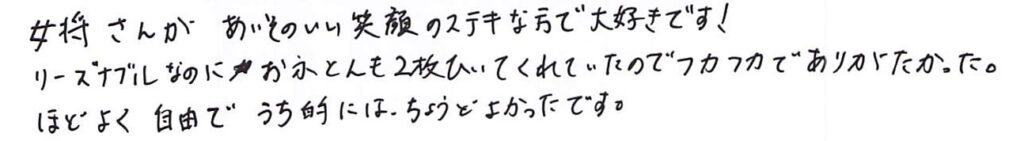 女将さんが あいそのいい笑顔のステキな方で大好きです!
リーズナブルなのにおふとんも2枚ひいてくれていたのでフカフカでありがたかった。
ほどよく 自由で うち的には、ちょうどよかったです。